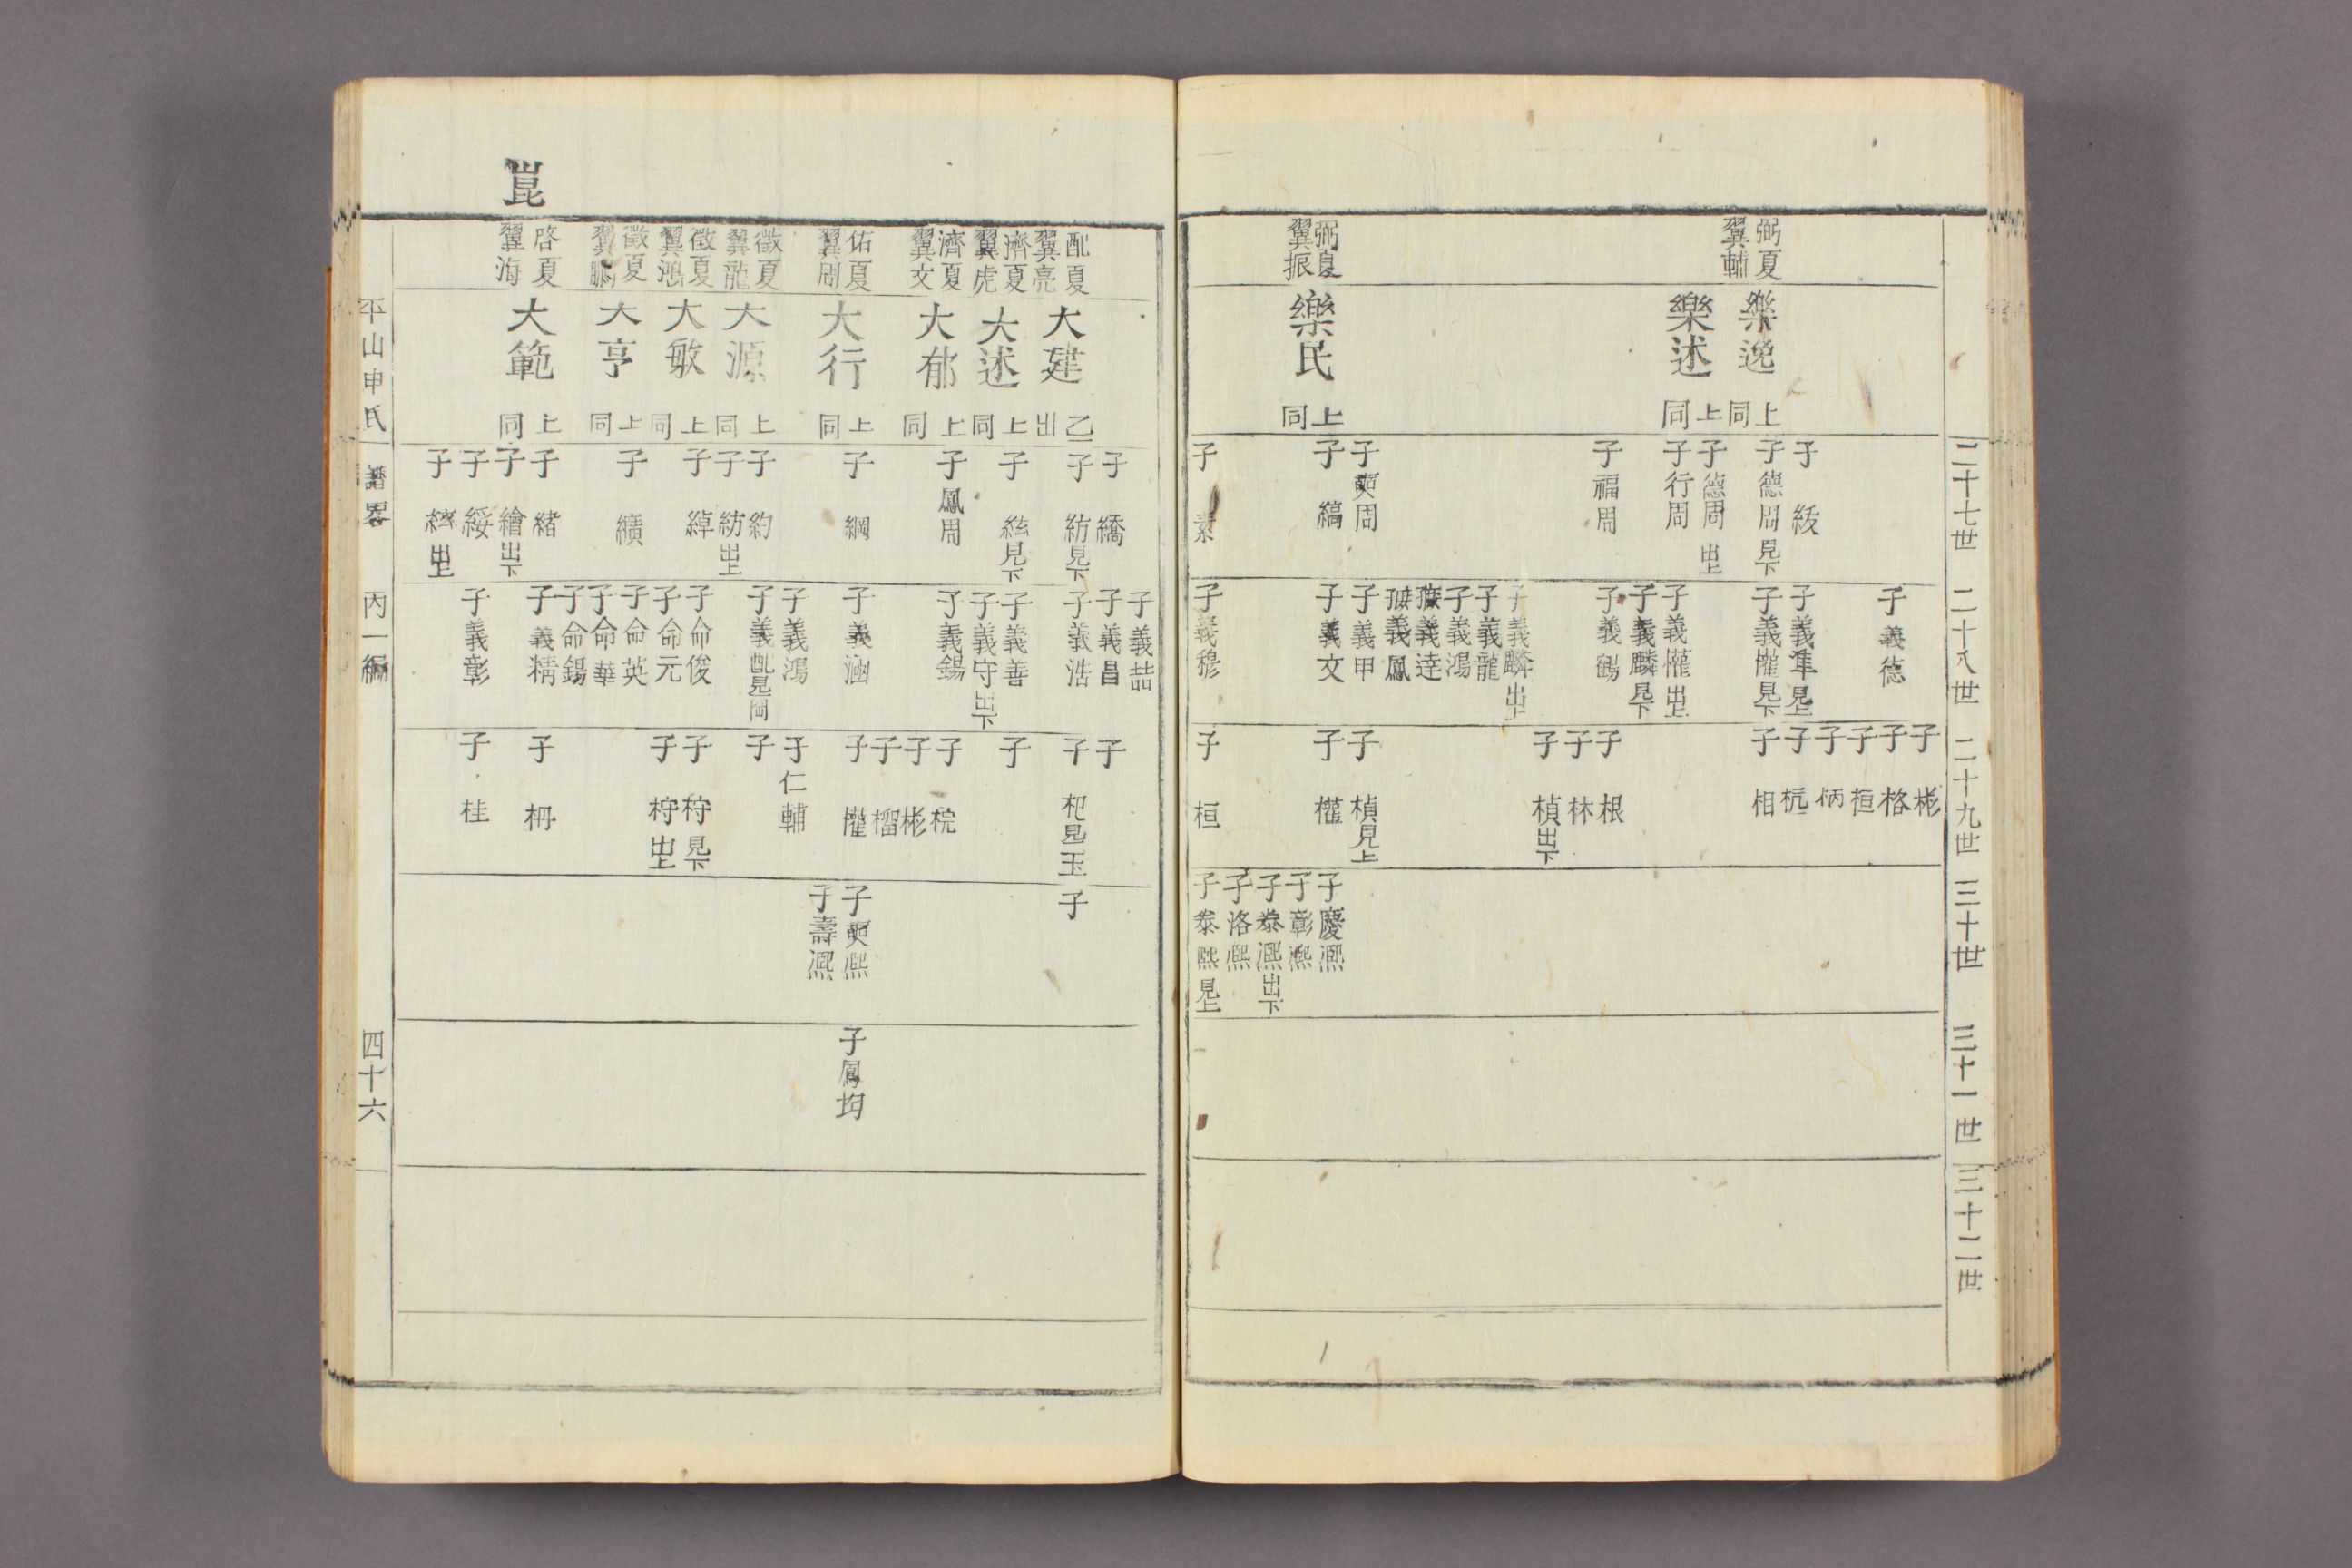 二十七世
二十八世
二十九世
三十世
三十一世
三十二世
弼夏
翼輔
弼夏
翼振
樂逸
上同
樂述
上同
樂民
上同
子 綾
子德周見下
子德周出上
子行周
子福周
子奭周
子 縞
子 素
子義德
子義隼見上
子義㒞見下
子義㒞出上
子義麟見下
子義鶴
子義麟出上
子義龍
子義鴻
義達
義鳳
子義甲
子義文
子義穆
子 彬
子 格
子 桓
子 柄
子 杭
子 相
子 根
子 林
子 楨出下
子 楨見上
子 權
子 桓
子慶熙
子彰熙
子泰熙出下
子洛熙
子泰熙見上
崑
配夏
翼亮
濟夏
翼虎
濟夏
翼文
佑夏
翼周
徵夏
翼龍
徵夏
翼鴻
徵夏
翼鵬
啓夏
翼海
大建
乙出
大述
上同
大郁
上同
大行
上同
大源
上同
大敏
上同
大亨
上同
大範
上同
子 繑
子 紡見下
子 絃見下
子鳳周
子 綱
子 約
子 紡出上
子 綽
子 纊
子 緖
子 繪出下
子 綏
子 絃出上
子義喆
子義昌
子義浩
子義善
子義守出下
子義錫
子義涵
子義鴻
子義配見岡
子命俊
子命元
子命英
子命華
子命錫
子義精
子義彰
子
子 杞見玉
子
子 梡
子 彬
子 榴
子 權
子仁輔
子
子 㭙見下
子 㭙出上
子 栂
子 桂
子
子奭熙
子壽熙
子鳳均
平山申氏
譜畧
丙一編
四十六